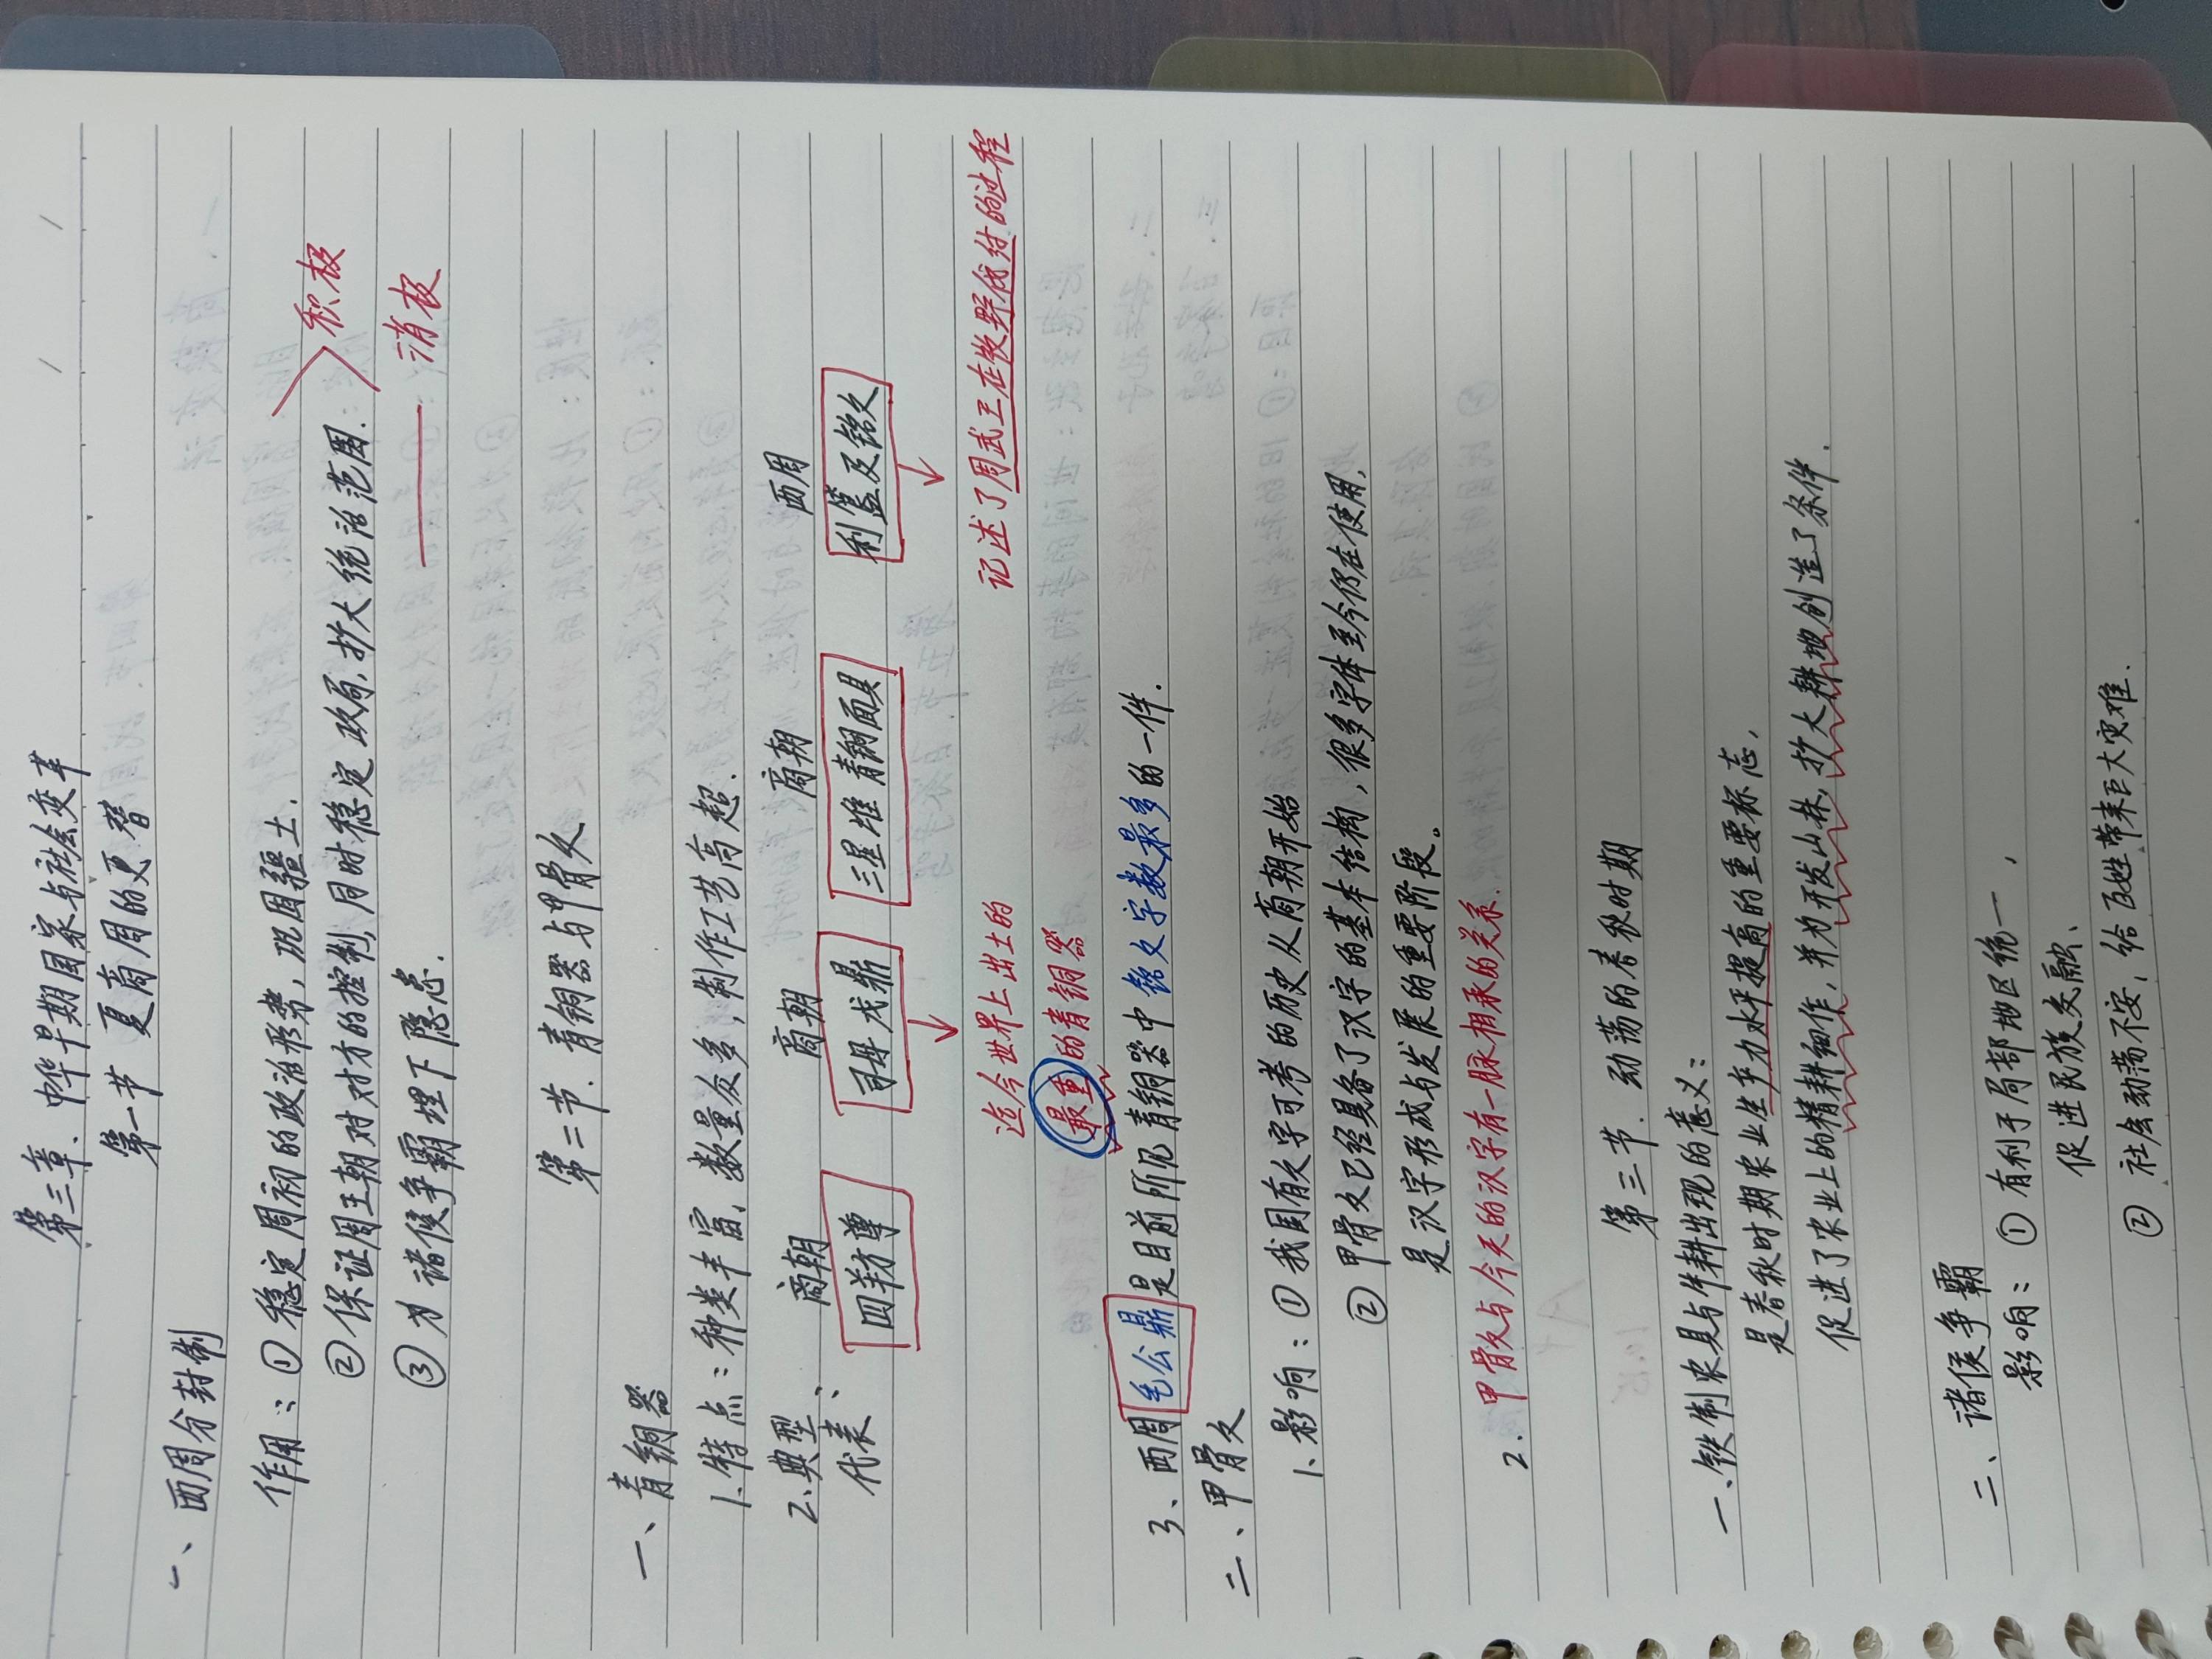 第三章. 中华早期国家与社会变革
第一节 夏商周的更替
一、西周分封制
作用：① 稳定周初的政治形势，巩固疆土.
② 保证周王朝对对方的控制,同时稳定政局,扩大统治范围.
积极
③ 为诸侯争霸埋下隐患.
消极
第二节. 青铜器与甲骨文
一、青铜器
1.特点：种类丰富，数量众多，制作工艺高超.
2.典型代表：
商朝 商朝 商朝 西周
四羊方尊 司母戊鼎 三星堆青铜面具 利簋及铭文
迄今世界上出土的最重的青铜器
记述了周武王在牧野伐纣的过程
3、西周毛公鼎是目前所见青铜器中铭文字数最多的一件.
二、甲骨文
1.影响：① 我国有文字可考的历史从商朝开始
② 甲骨文已经具备了汉字的基本结构，很多字体至今仍在使用,
是汉字形成与发展的重要阶段。
2. 甲骨文与今天的汉字有一脉相承的关系.
第三节. 动荡的春秋时期
一.铁制农具与牛耕出现的意义：
是春秋时期农业生产力水平提高的重要标志,
促进了农业上的精耕细作，并为开发山林,扩大耕地创造了条件.
二、诸侯争霸
影响：① 有利于局部地区统一，
促进民族交融、
② 社会动荡不安，给百姓带来巨大灾难.